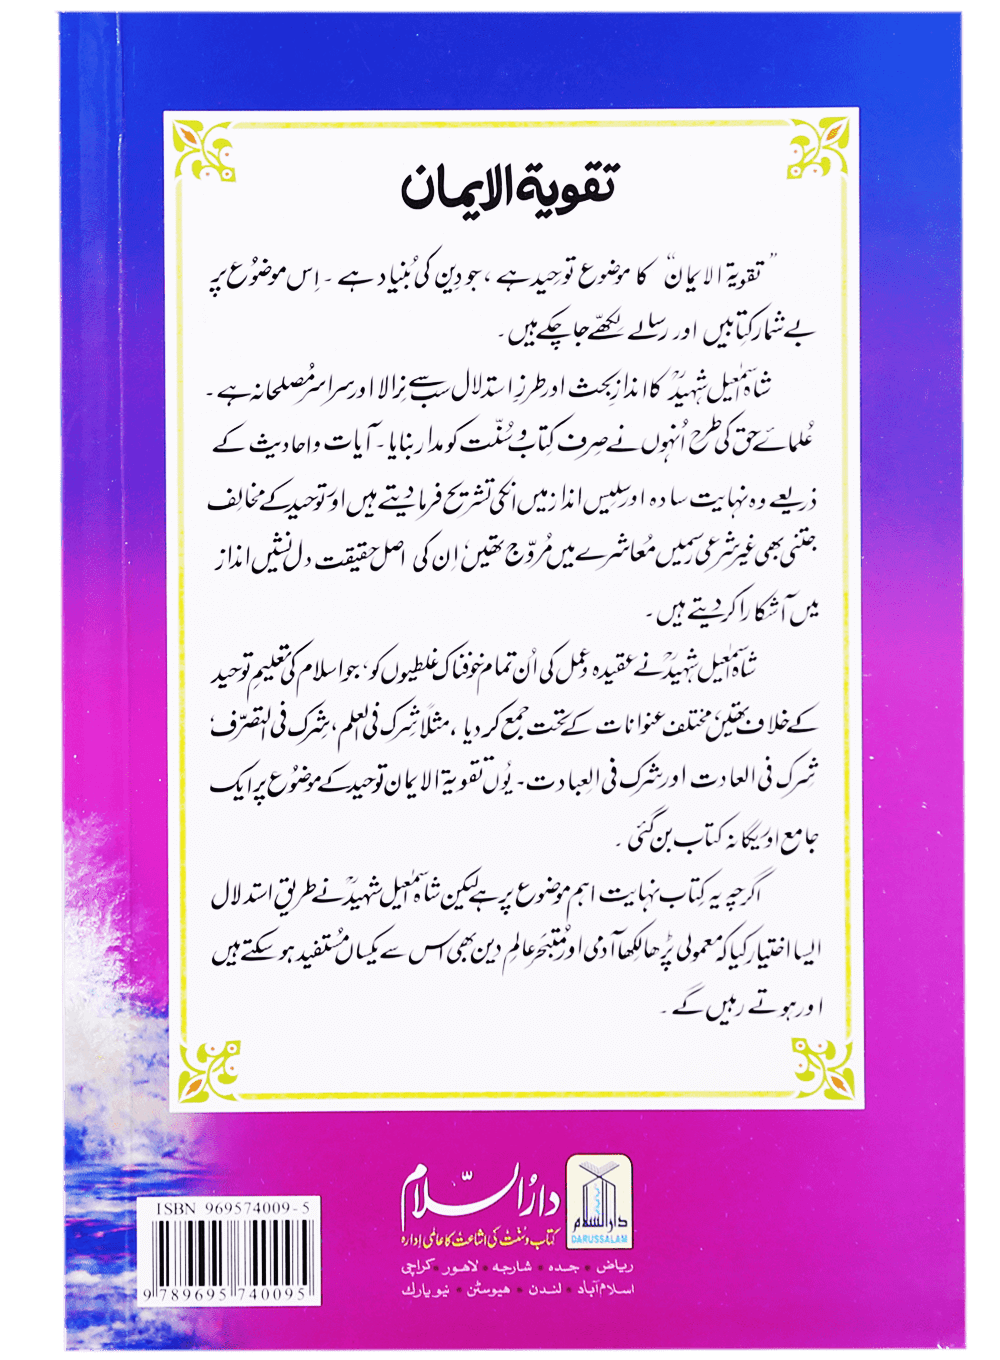 تقویۃ الایمان
”تقویۃ الایمان“ کا موضوع توحید ہے، جو دِین کی بُنیاد ہے۔ اِس موضوُع پر
بے شمار کِتابیں اور رسالے لِکھّے جا چکے ہیں۔
شاہ اسمٰعیل شہیدؒ کا اندازِ بحث اور طرزِ استدلال سب سے نِرالا اور سراسر مُصلحانہ ہے۔
عُلمائے حق کی طرح اُنہوں نے صِرف کِتاب و سُنّت کو مدار بنایا۔ آیات و احادیث کے
ذریعے وہ نہایت سادہ اور سلِیس انداز میں انکی تشریح فرما دیتے ہیں اور توحید کے مخالِف
جتنی بھی غیر شرعی رسمیں مُعاشرے میں مُروّج تھیں، اِن کی اصل حقیقت دل نشیں انداز
میں آشکارا کر دیتے ہیں۔
شاہ اسمٰعیل شہیدؒ نے عقیدہ و عمل کی اُن تمام خوفناک غلطیوں کو، جو اسلام کی تعلیمِ توحید
کے خلاف تھیں، مختلف عنوانات کے تحت جمع کر دیا، مثلاً شِرک فی العلم، شِرک فی التصرّف،
شِرک فی العادت اور شرک فی العِبادت۔ یُوں تقویۃ الایمان توحید کے موضُوع پر ایک
جامع اور یگانہ کتاب بن گئی۔
اگرچہ یہ کِتاب نہایت اہم موضوع پر ہے لیکن شاہ اسمٰعیل شہیدؒ نے طریقِ استدلال
ایسا اختیار کیا کہ معمولی پڑھا لکھا آدمی اور مُتبحّر عالمِ دین بھی اس سے یکساں مُستفید ہو سکتے ہیں
اور ہوتے رہیں گے۔
دارُالسّلام
کتاب و سُنّت کی اشاعت کا عالمی اِدارہ
ریاض • جدہ • شارجہ • لاھور • کراچی
اسلام آباد • لندن • ھیوسٹن • نیو یارک
دارالسلام
DARUSSALAM
ISBN 969574009-5
9 789695 740095